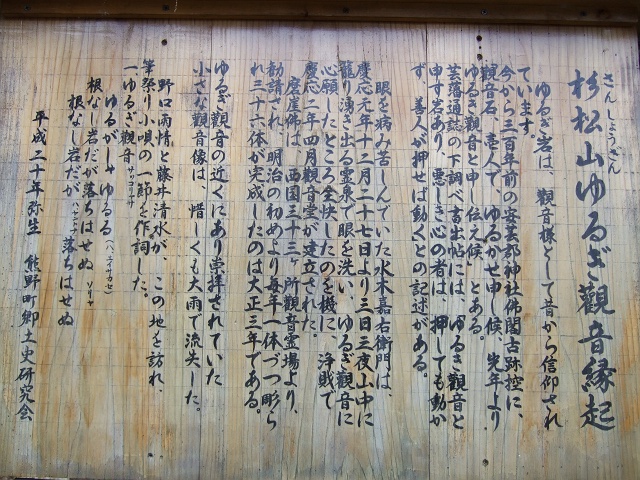 さん しょうざん
杉松山ゆるぎ観音縁起
ゆるぎ岩は、観音様として昔から信仰され
ています。
今から三百年前の安芸郡神社佛閣古跡控に、
観音石、壱人で、ゆるがせ申し候、先年より
ゆるき観音と申し伝え候、とある。
芸藩通誌の下調べ書出帖には、ゆるき観音と
申す岩あり、悪しき心の者は、押しても動か
ず、善人が押せば動くとの記述がある。
眼を病み苦しんでいた水木嘉右衛門は、
慶応元年十二月二十七日より三日三夜山中に
籠り湧き出る霊泉で眼を洗い、ゆるぎ観音に
心願したところ全快したのを機に、浄財で
慶応二年四月観音堂が建立された。
磨崖佛は、西国三十三ヶ所観音霊場より、
勧請され、明治の初めより毎年一体づつ彫ら
れ三十六体が完成したのは大正三年である。
ゆるぎ観音の近くにあり崇拝されていた
小さな観音像は、惜しくも大雨で流失した。
野口雨情と藤井清水が、この地を訪れ、
筆祭り小唄の一節を作詞した。
一、ゆるぎ観音 サッコリサ
ゆるがしゃゆるる (ハ、エイサカセ)
根なし岩だが落ちはせぬ ソリャ
根なし岩だが 落ちはせぬ
平成二十年弥生 熊野町郷土史研究会